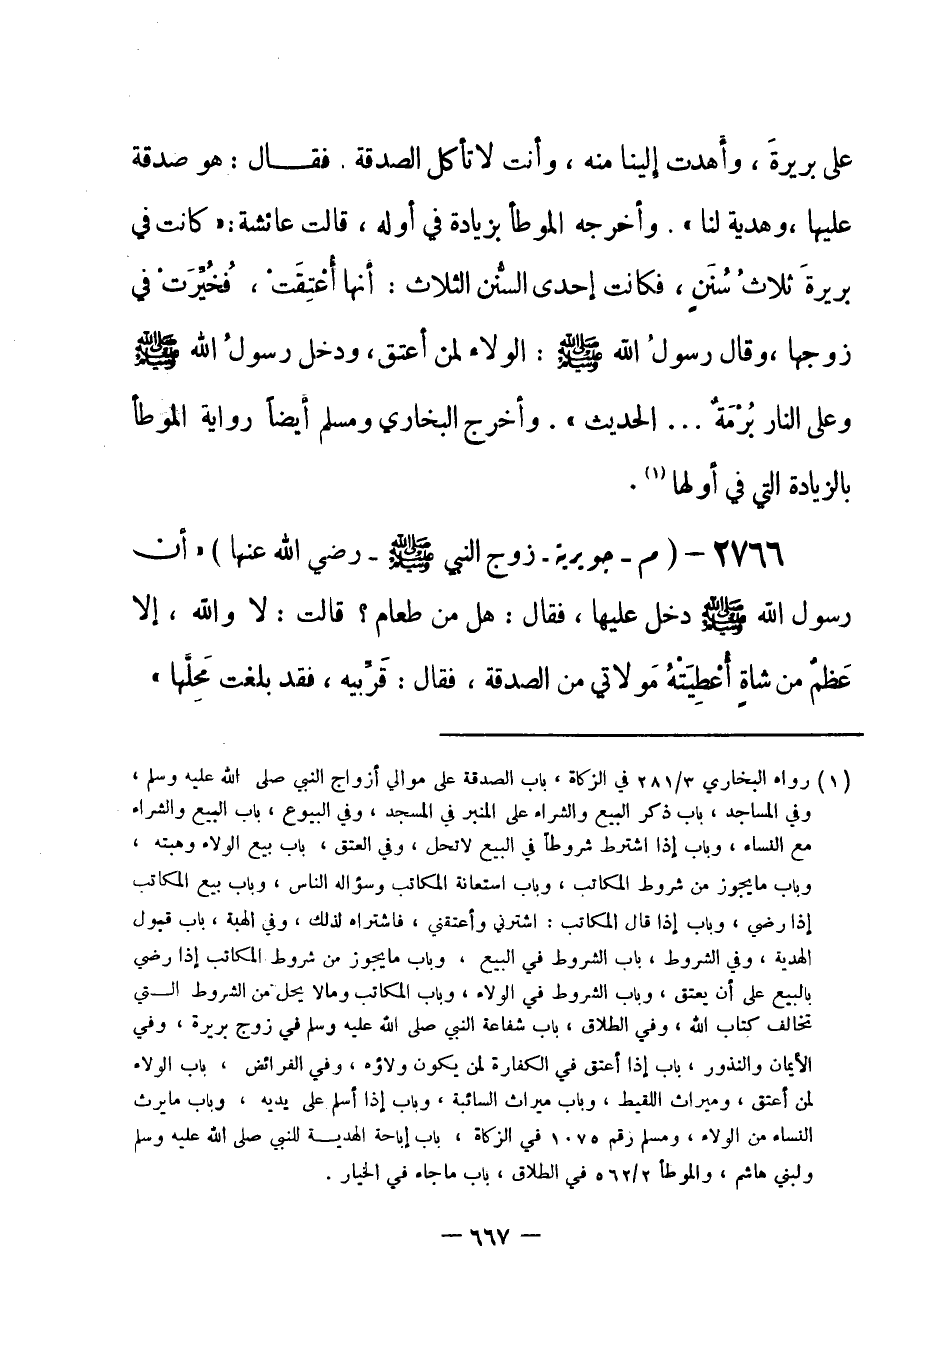 على بريرةَ ، وأهدت إلينا منه ، وأنت لاتأكل الصدقة . فقــال : هو صدقة
عليها ،وهدية لنا » . وأخرجه الموطأ بزيادة في أوله ، قالت عائشة :« كانت في
بريرةَ ثلاثُ سُنَنٍ ، فكانت إحدى السُّنن الثلاث : أنها أُعْتِقَتْ ، فَخُيِّرَتْ في
زوجها ،وقال رسولُ الله ﷺ : الولاء لمن أعتق، ودخل رسولُ الله ﷺ
وعلى النار بُرْمَةٌ ... الحديث » . وأخرج البخاري ومسلم أيضاً رواية الموطأ
بالزيادة التي في أولها (١) .
٢٧٦٦ – ( م ـ جويرية ـ زوج النبي ﷺ ـ رضي الله عنها ) « أن
رسول الله ﷺ دخل عليها ، فقال : هل من طعام ؟ قالت : لا والله ، إلا
عَظمٌ من شاةٍ أُعْطِيَتْهُ مَولاتي من الصدقة ، فقال : قَرِّبيه ، فقد بلغت مَحِلَّها »
(١) رواه البخاري ٢٨١/٣ في الزكاة ، باب الصدقة على موالي أزواج النبي صلى الله عليه وسلم ،
وفي المساجد ، باب ذكر البيع والشراء على المنبر في المسجد ، وفي البيوع ، باب البيع والشراء
مع النساء ، وباب إذا اشترط شروطاً في البيع لاتحل ، وفي العتق ، باب بيع الولاء وهبته ،
وباب مايجوز من شروط المكاتب ، وباب استعانة المكاتب وسؤاله الناس ، وباب بيع المكاتب
إذا رضي ، وباب إذا قال المكاتب : اشترني وأعتقني ، فاشتراه لذلك ، وفي الهبة ، باب قبول
الهدية ، وفي الشروط ، باب الشروط في البيع ، وباب مايجوز من شروط المكاتب إذا رضي
بالبيع على أن يعتق ، وباب الشروط في الولاء ، وباب المكاتب ومالا يحل من الشروط الـتي
تخالف كتاب الله ، وفي الطلاق ، باب شفاعة النبي صلى الله عليه وسلم في زوج بريرة ، وفي
الأيمان والنذور ، باب إذا أعتق في الكفارة لمن يكون ولاؤه ، وفي الفرائض ، باب الولاء
لمن أعتق ، وميراث اللقيط ، وباب ميراث السائبة ، وباب إذا أسلم على يديه ، وباب مايرث
النساء من الولاء ، ومسلم رقم ١٠٧٥ في الزكاة ، باب إباحة الهديـــة للنبي صلى الله عليه وسلم
ولبني هاشم ، والموطأ ٥٦٢/٢ في الطلاق ، باب ماجاء في الخيار .
— ٦٦٧ —